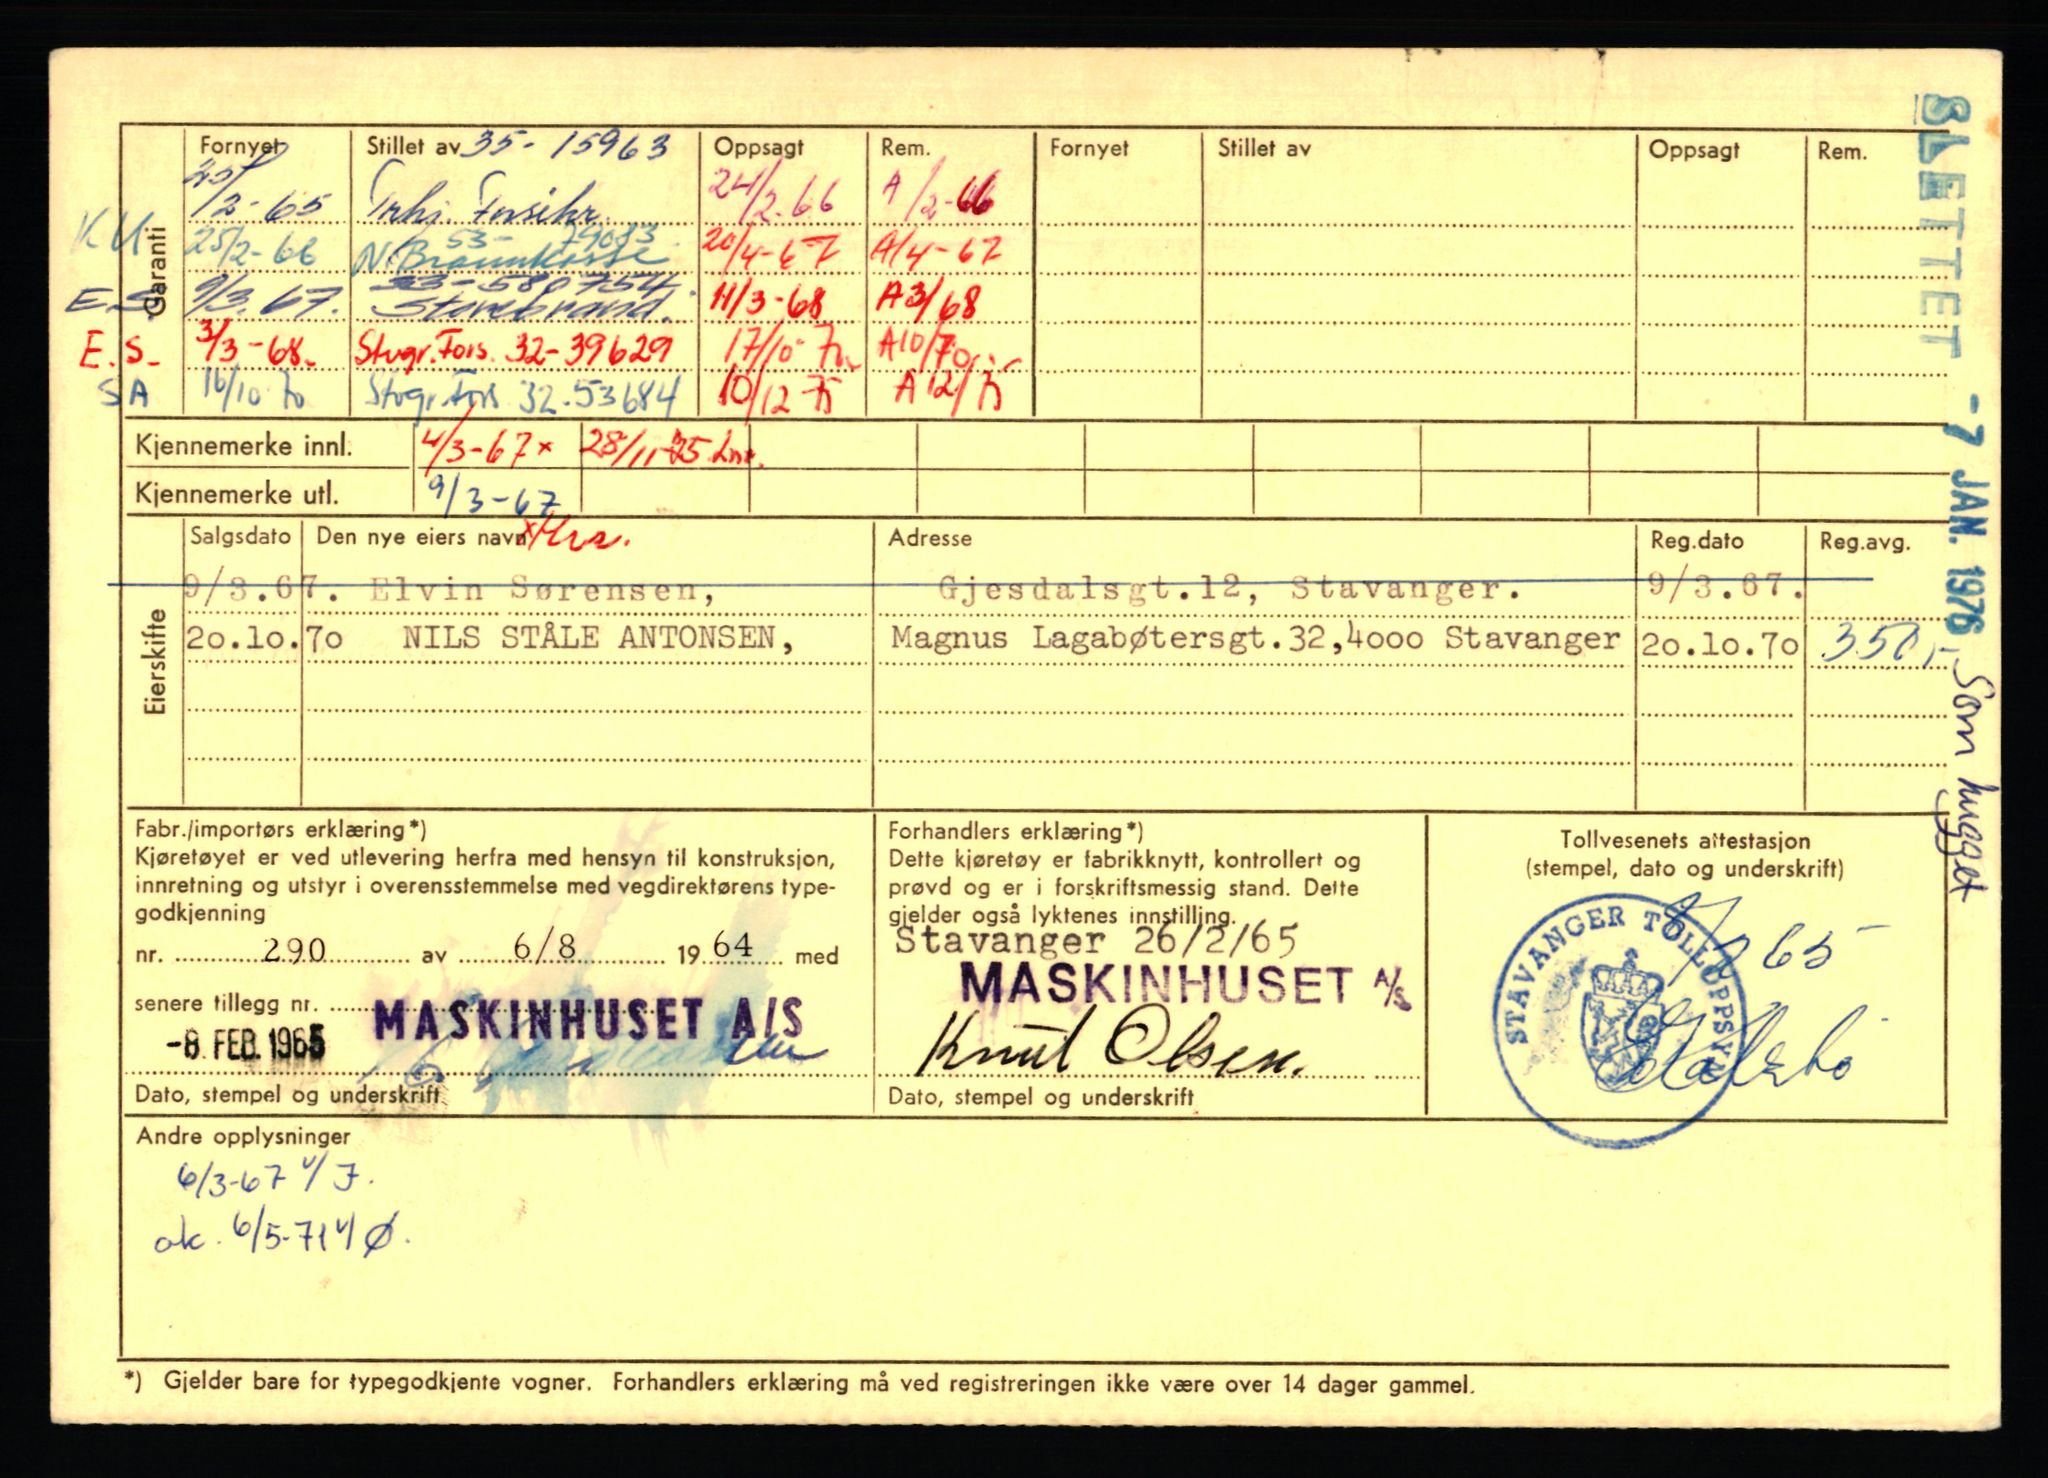 Fornyet Stillet av 35-15963 Oppsagt Rem. Fornyet Stillet av Oppsagt Rem.
Garanti
25/2-65 Trhi. Forsikr. 24/2.66 A/2-66
K.U 25/2-66 53-79083 20/4-67 A/4-67
N. Brannkasse
E.S. 9/3.67. 53-580754. 11/3-68 A3/68
Storebrand.
E.S. 3/3-68. Stvgr. Fors. 32-39629 17/10-70 A10/70
SA 16/10 70 Stvgr. Fors 32.53684 10/12 75 A 12/75
Kjennemerke innl. 4/3-67 x 28/11-75
Kjennemerke utl. 9/3-67
Eierskifte
Salgsdato Den nye eiers navn Adresse Reg.dato Reg.avg.
9/3.67. Elvin Sørensen, Gjesdalsgt.12, Stavanger. 9/3.67.
20.10.70 NILS STÅLE ANTONSEN, Magnus Lagabøtersgt.32,4000 Stavanger 20.10.70 350,-
SLETTET - 7 JAN. 1976 Som hugget
Fabr./importørs erklæring*)
Kjøretøyet er ved utlevering herfra med hensyn til konstruksjon,
innretning og utstyr i overensstemmelse med vegdirektørens type-
godkjenning
nr. 290 av 6/8 1964 med
senere tillegg nr.
-8. FEB. 1965 MASKINHUSET A/S
Dato, stempel og underskrift
Forhandlers erklæring*)
Dette kjøretøy er fabrikknytt, kontrollert og
prøvd og er i forskriftsmessig stand. Dette
gjelder også lyktenes innstilling.
Stavanger 26/2/65
MASKINHUSET A/S
Knut Olsen.
Dato, stempel og underskrift
Tollvesenets attestasjon
(stempel, dato og underskrift)
STAVANGER TOLLOPPSYN
65
Andre opplysninger
6/3-67 v/ J.
ok. 6/5-71 v/ Ø.
*) Gjelder bare for typegodkjente vogner. Forhandlers erklæring må ved registreringen ikke være over 14 dager gammel.